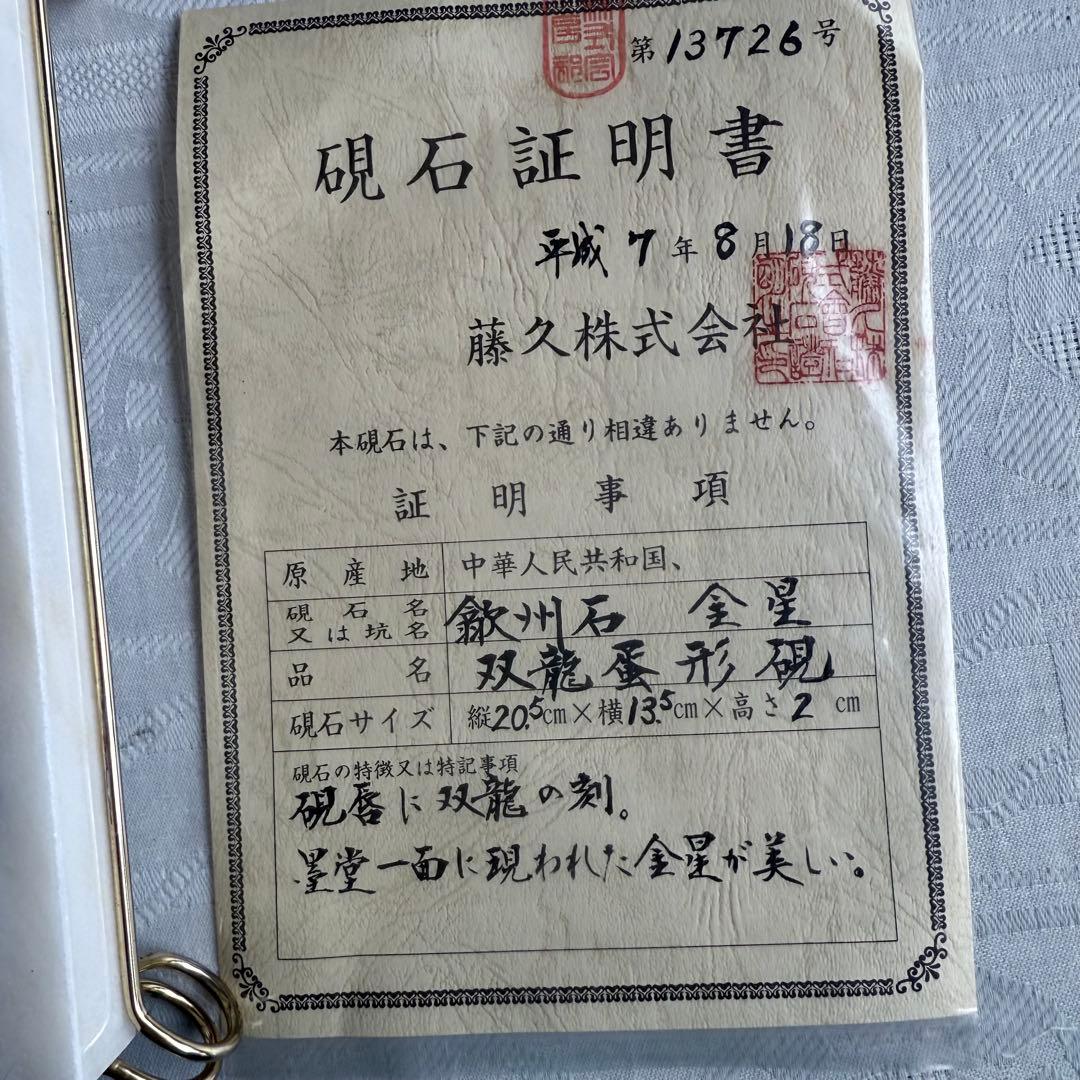 第13726号
硯石証明書
平成7年8月18日
藤久株式会社
本硯石は、下記の通り相違ありません。
証明事項
原産地 中華人民共和国、
硯石名又は坑名 歙州石 金星
品名 双龍蛋形硯
硯石サイズ 縦20.5cm×横13.5cm×高さ2cm
硯石の特徴又は特記事項
硯唇に双龍の刻。
墨堂一面に現われた金星が美しい。